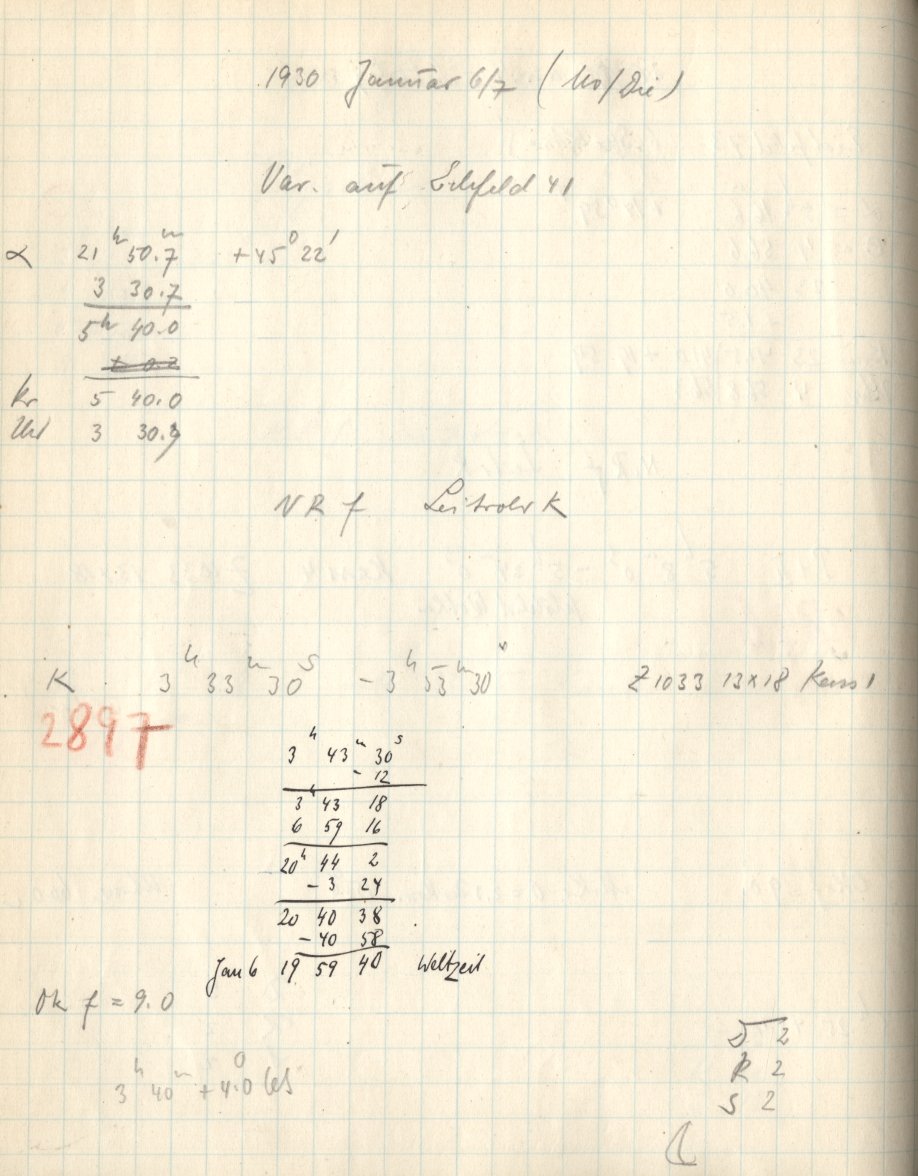 1930 Januar 6/7 (Mo/Die)
Var. auf Eichfeld 41
α 21ʰ 50.7ᵐ +45⁰ 22'
3 30.7
5ʰ 40.0
Kr 5 40.0
Uhr 3 30.7
NR f Leitrohr K
K 3ʰ 33ᵐ 30ˢ - 3ʰ 53ᵐ 30ˢ Z 1033 13x18 Kass 1
2897
3ʰ 43ᵐ 30ˢ
- 12
3ʰ 43 18
6 59 16
20ʰ 44 2
- 3 24
20 40 38
- 40 58
Jan 6 19 59 40 Weltzeit
Ok f = 9.0
3ʰ 40ᵐ + 4.⁰0
D 2
R 2
S 2